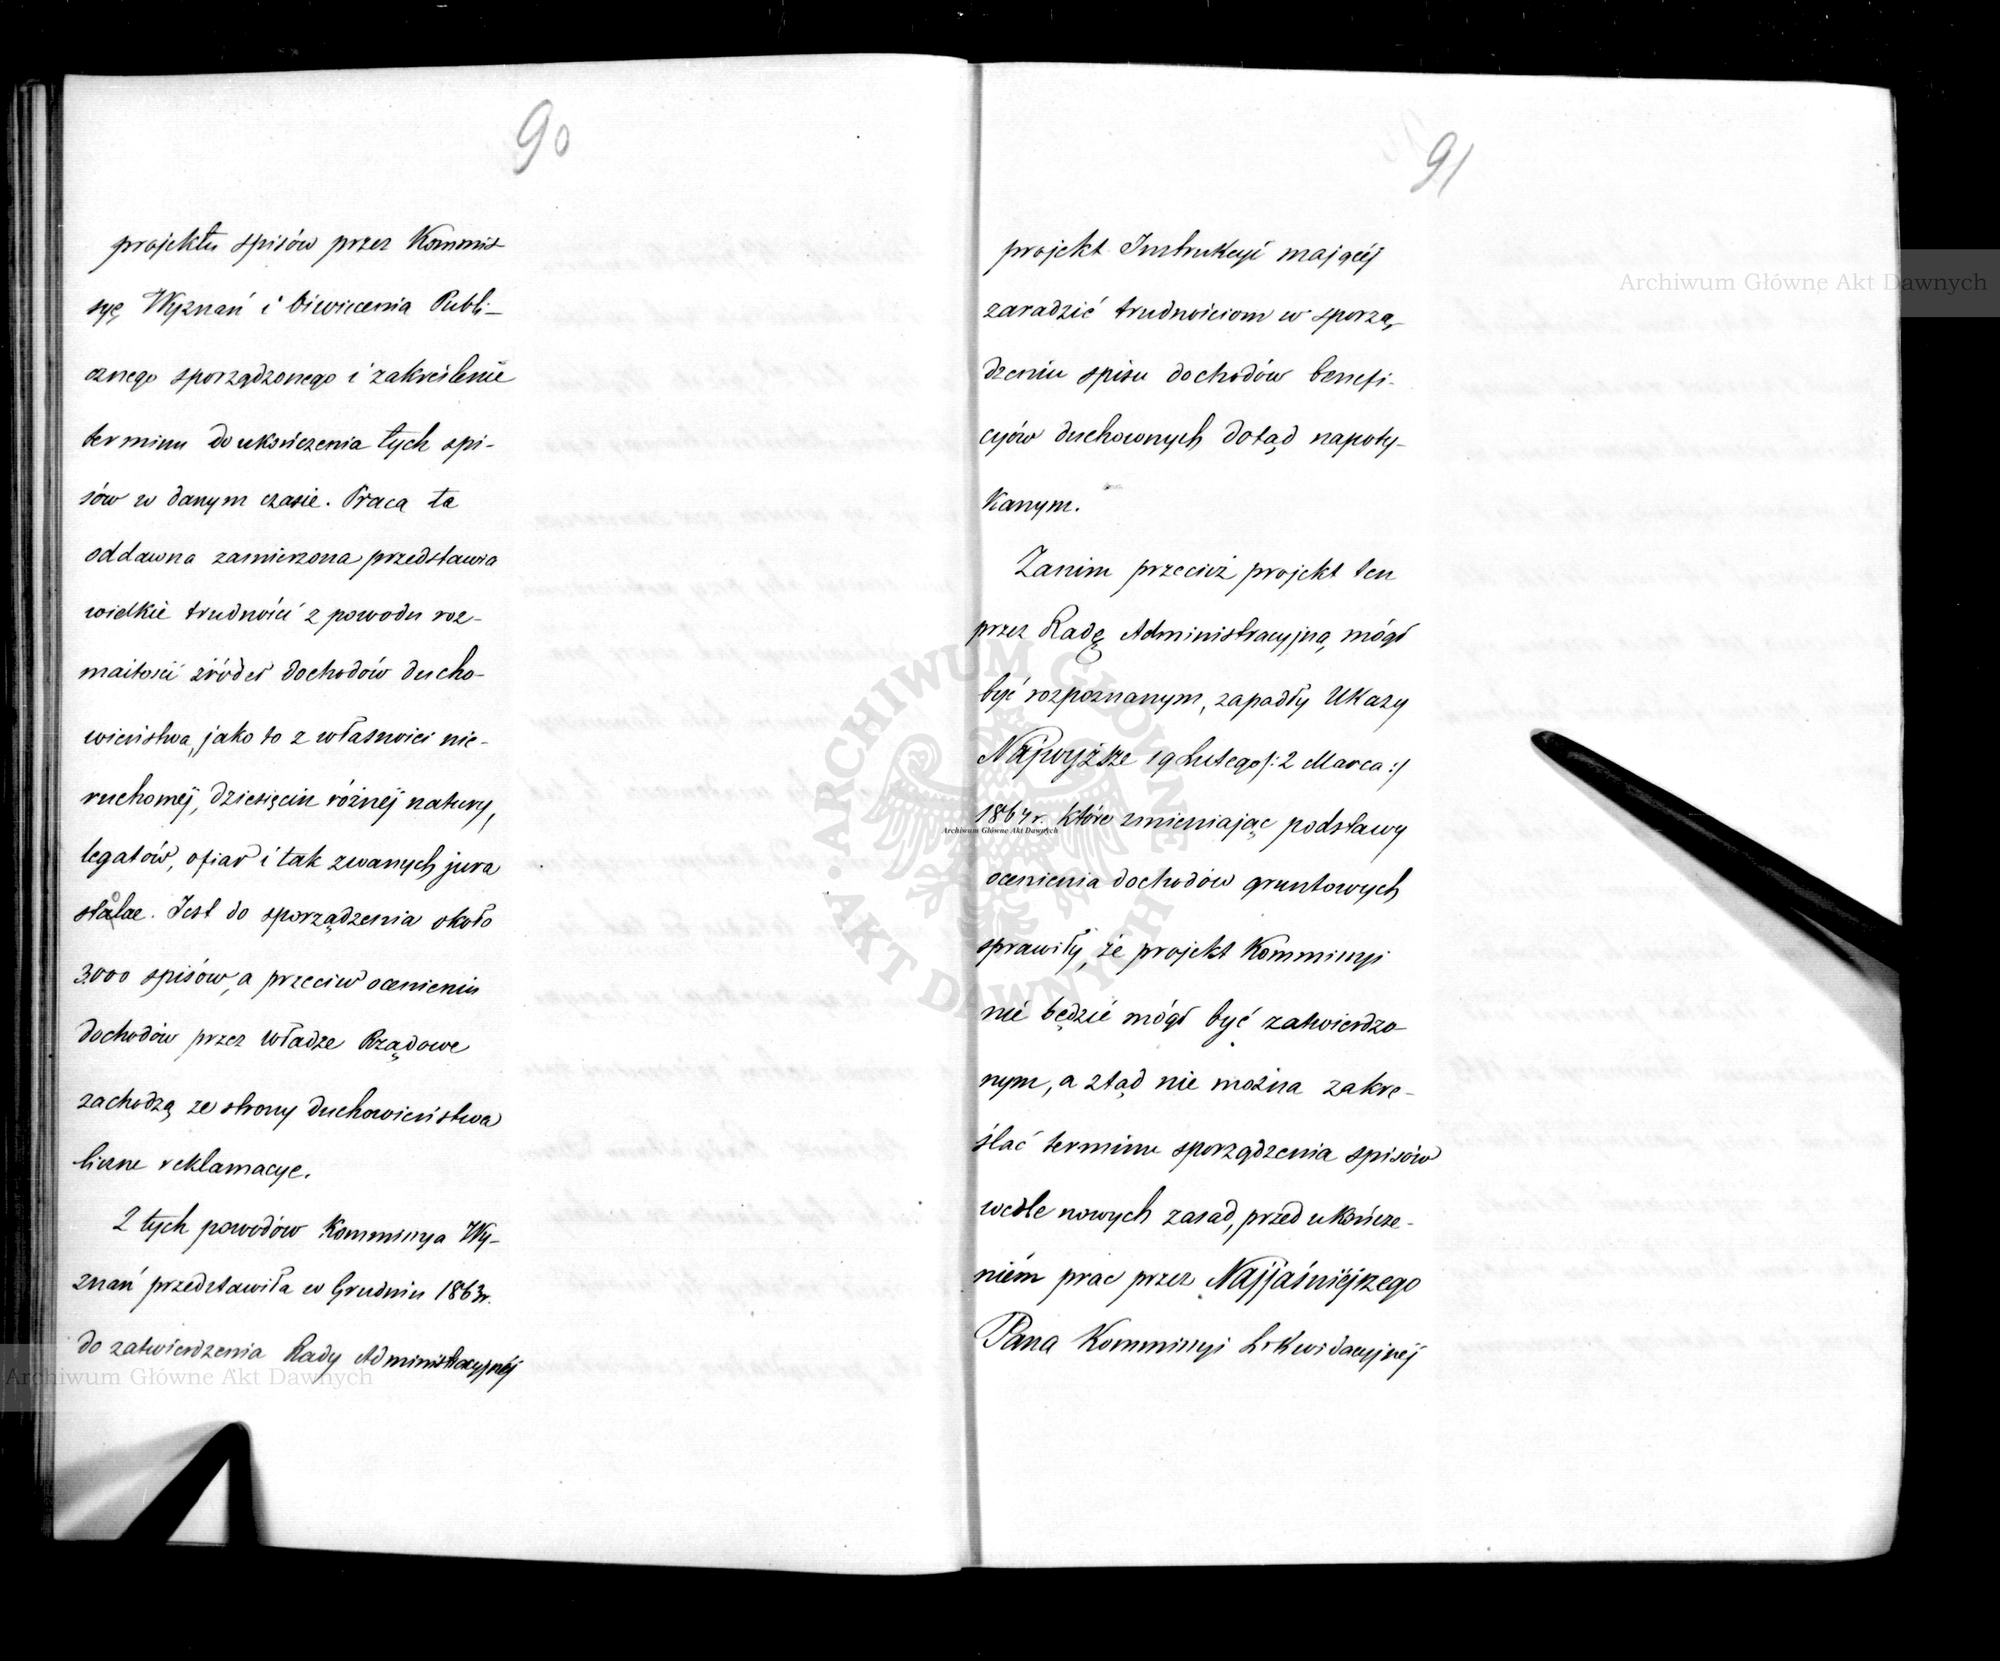 90
projektu spisów przez Kommis
syę Wyznań i Oświecenia Publi-
cznego sporządzonego i zakreślenie
terminu do ukończenia tych spi-
sów w danym czasie. Praca ta
oddawna zamierzona przedstawia
wielkie trudności z powodu roz-
maitości źródeł dochodów ducho-
wieństwa, jako to z własności nie-
ruchomej, dziesięcin różnej natury,
legatów, ofiar i tak zwanych jura
stolae. Jest do sporządzenia około
3000 spisów, a przeciw ocenieniu
dochodów przez Władze Rządowe
zachodzą ze strony duchowieństwa
liczne reklamacye.
Z tych powodów Kommissya Wy-
znań przedstawiła w Grudniu 1863r.
do zatwierdzenia Rady Administracyjnéj
91
projekt Instrukcyi mającéj
zaradzić trudnościom w sporzą-
dzeniu spisu dochodów benefi-
cyów duchownych dotąd napoty-
kanym.
Zanim przecież projekt ten
przez Radę Administracyjną mógł
być rozpoznanym, zapadły Ukazy
Najwyższe 19 Lutego /: 2 Marca :/
1864r. które zmieniając podstawy
ocenienia dochodów gruntowych
sprawiły, że projekt Kommissyi
nie będzie mógł być zatwierdzo-
nym, a ztąd nie można zakre-
ślać terminu sporządzenia spisów
wedle nowych zasad, przed ukończe-
niém prac przez Najjaśniéjszego
Pana Kommissyi Likwidacyjnéj
Archiwum Główne Akt Dawnych
Archiwum Główne Akt Dawnych
Archiwum Główne Akt Dawnych
ARCHIWUM GŁÓWNE • AKT DAWNYCH •